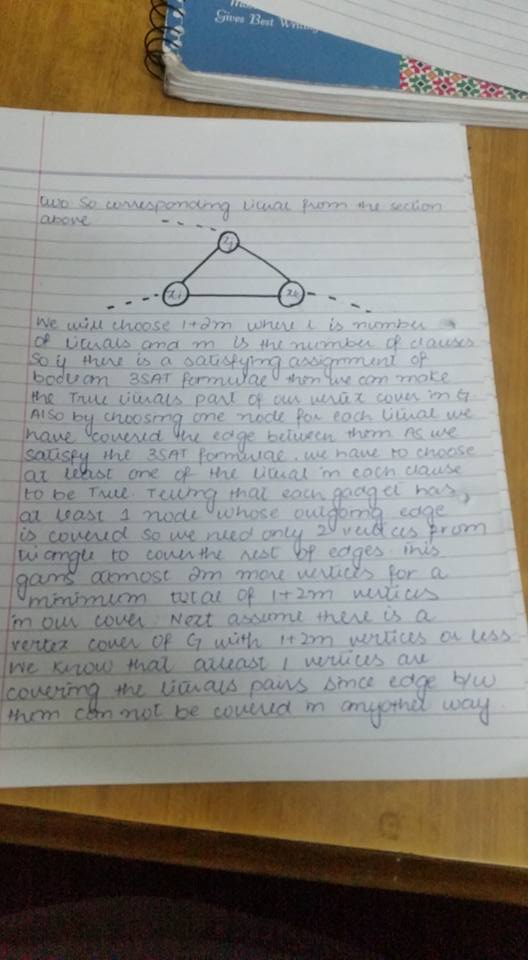 Gives Best Writing
two so corresponding litual from the section
above
We will choose 1+2m where l is number
of lituals and m is the number of clauses
So if there is a satisfying assignment of
boolean 3SAT formulae then we can make
the True lituals part of our vertix cover in G.
Also by choosing one node for each litual we
have covered the edge between them As we
satisfy the 3SAT formulae, we have to choose
at least one of the litual in each clause
to be True. Telling that each gadget has,
at least 1 node whose outgoing edge
is covered so we need only 2 vertices from
triangle to cover the rest of edges. this
gains atmost 2m more vertices for a
minimum total of 1+2m vertices
in our cover. Next assume there is a
vertex cover of G with 1+2m vertices or less
We know that atleast 1 vertices are
covering the lituals pairs since edge b/w
them can not be covered in anyother way